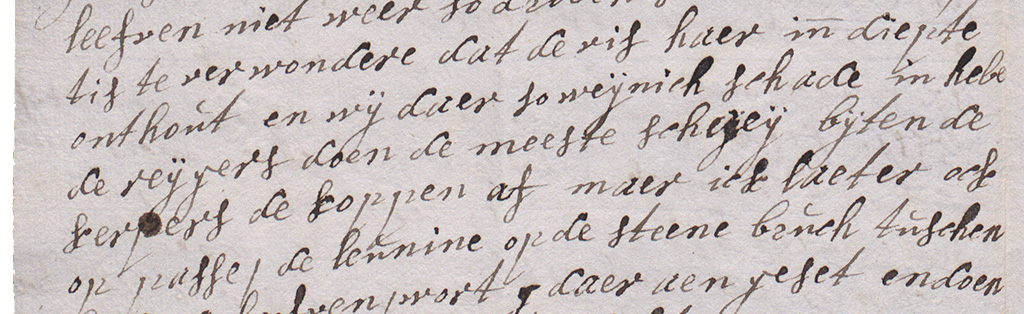 leefren niet weer so
tis te verwondere dat de vis haer in diepte
onthout en wij daer so weijnich schade in hebe
de reijgers doen de meeste scheyeij bijten de
kerpers de koppen af maer ick laeter ock
op passe, de leunine op de steene bruch tuschen
wort daer aen geset en doen